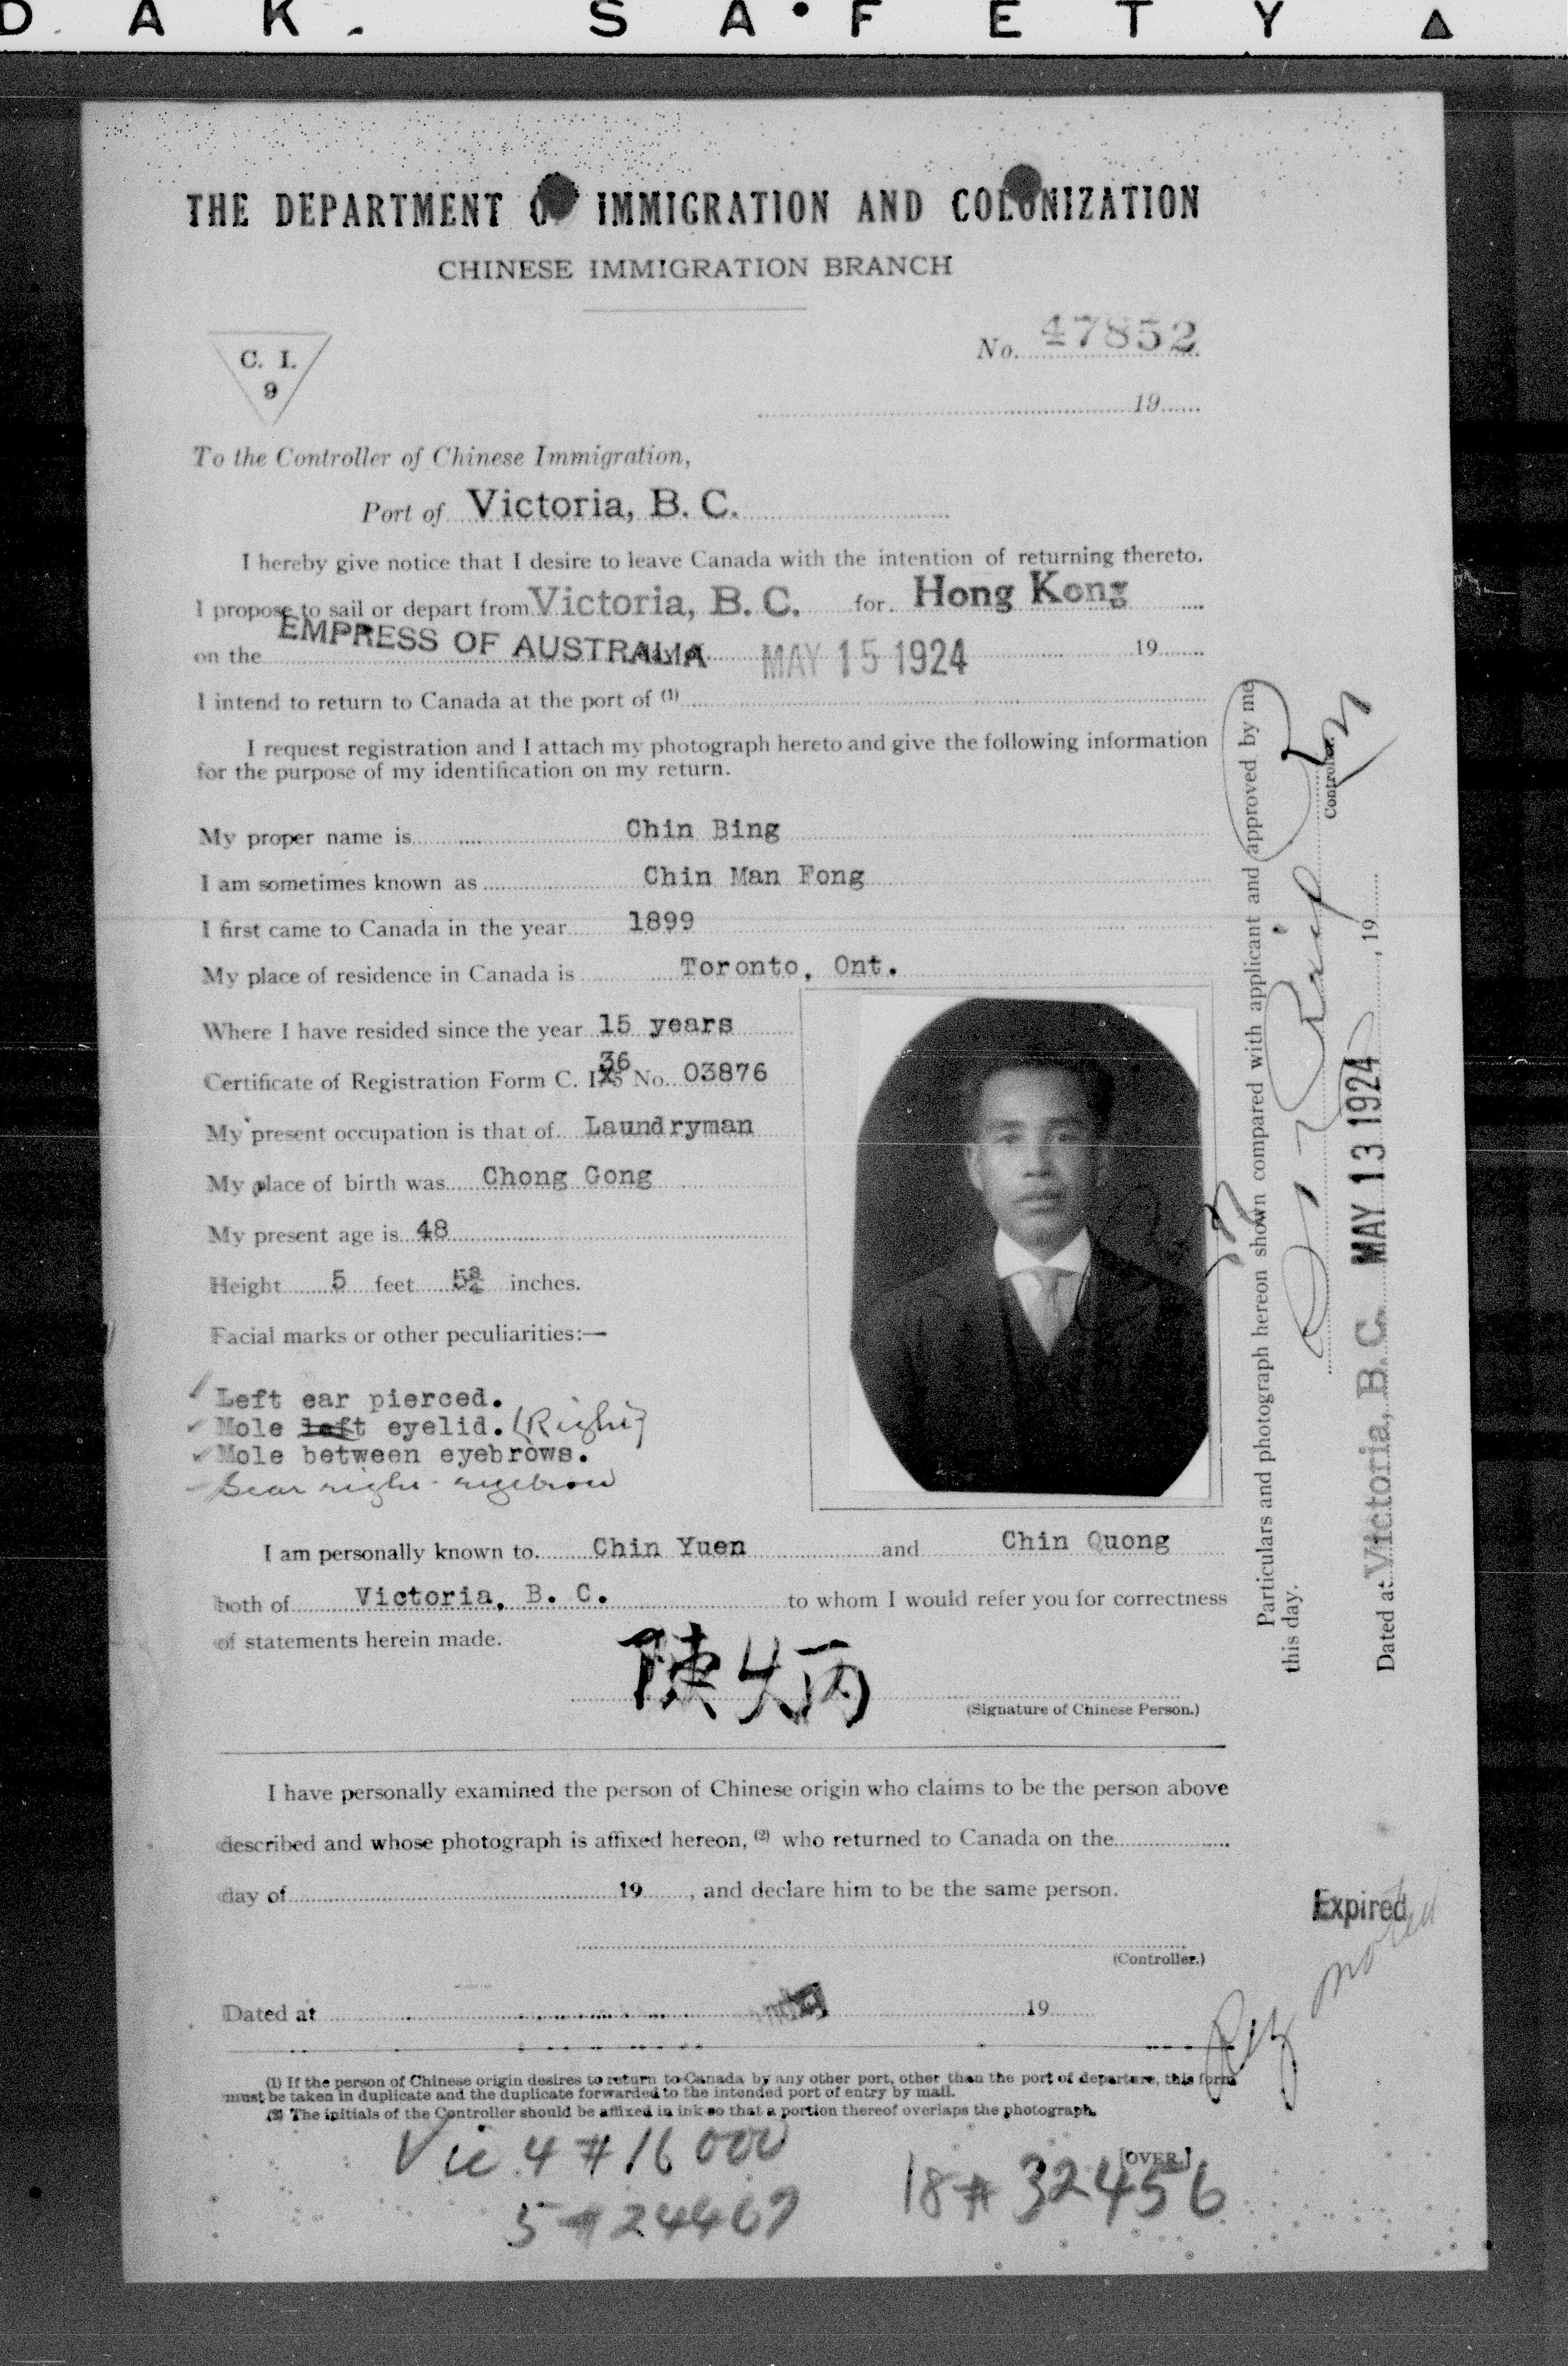 D A K . S A • F E T Y
THE DEPARTMENT OF IMMIGRATION AND COLONIZATION
CHINESE IMMIGRATION BRANCH
C. I.
9
No. 47852
19
To the Controller of Chinese Immigration,
Port of Victoria, B. C.
I hereby give notice that I desire to leave Canada with the intention of returning thereto.
I propose to sail or depart from Victoria, B. C. for Hong Kong
on the EMPRESS OF AUSTRALIA MAY 15 1924 19
I intend to return to Canada at the port of (1)
I request registration and I attach my photograph hereto and give the following information
for the purpose of my identification on my return.
My proper name is Chin Bing
I am sometimes known as Chin Man Fong
I first came to Canada in the year 1899
My place of residence in Canada is Toronto, Ont.
Where I have resided since the year 15 years
36
Certificate of Registration Form C. I. 5 No. 03876
My present occupation is that of Laundryman
My place of birth was Chong Gong
My present age is 48
Height 5 feet 5¾ inches.
Facial marks or other peculiarities:—
Left ear pierced.
Mole left eyelid. (Right)
Mole between eyebrows.
Scar right eyebrow
I am personally known to Chin Yuen and Chin Quong
both of Victoria, B. C. to whom I would refer you for correctness
of statements herein made.
(Signature of Chinese Person.)
I have personally examined the person of Chinese origin who claims to be the person above
described and whose photograph is affixed hereon, (2) who returned to Canada on the
day of 19 , and declare him to be the same person.
(Controller.)
Dated at 19
(1) If the person of Chinese origin desires to return to Canada by any other port, other than the port of departure, this form
must be taken in duplicate and the duplicate forwarded to the intended port of entry by mail.
(2) The initials of the Controller should be affixed in ink so that a portion thereof overlaps the photograph.
[OVER.]
Vic 4 # 16000
5 # 24467
18 # 32456
Particulars and photograph hereon shown compared with applicant and approved by me
this day.
Controller.
Dated at Victoria, B. C. MAY 13 1924 , 19
Expired
Reg noted